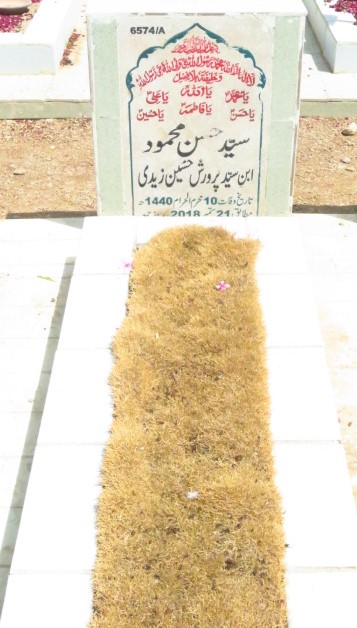 6574/A
لا اله الا الله محمد رسول الله علی ولی الله
یا محمدؐ یا اللہ یا علیؑ
یا حسنؑ یا فاطمہؑ یا حسینؑ
سیّد حسن محمود
ابن سیّد پرورش حسین زیدی
تاریخ وفات 10 محرم الحرام 1440ھ
بمطابق 21 ستمبر 2018